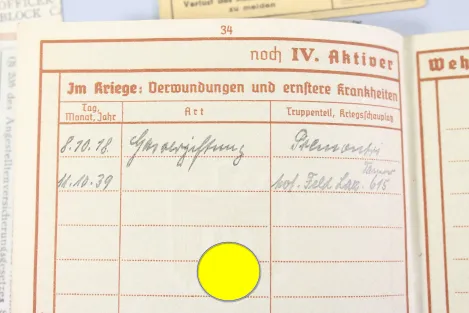 OFFICER
BLOCK C
Verlust des
zu melden
34
noch IV. Aktiver
Weh
Im Kriege: Verwundungen und ernstere Krankheiten
Tag, Monat, Jahr
Art
Truppenteil, Kriegsschauplatz
8.10.18. Gasvergiftung
11.10.39 Feld Laz. 615
des Angestelltenversicherungsgesetzes